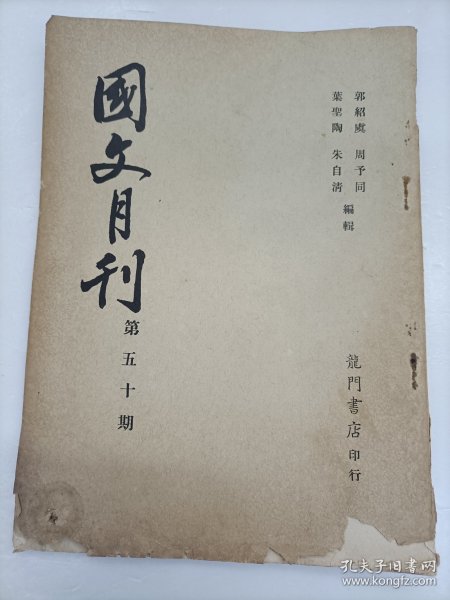 郭紹虞 周予同
葉聖陶 朱自清 編輯
龍門書店印行
國文月刊
第五十期
孔夫子旧书网
www.kongfz.com